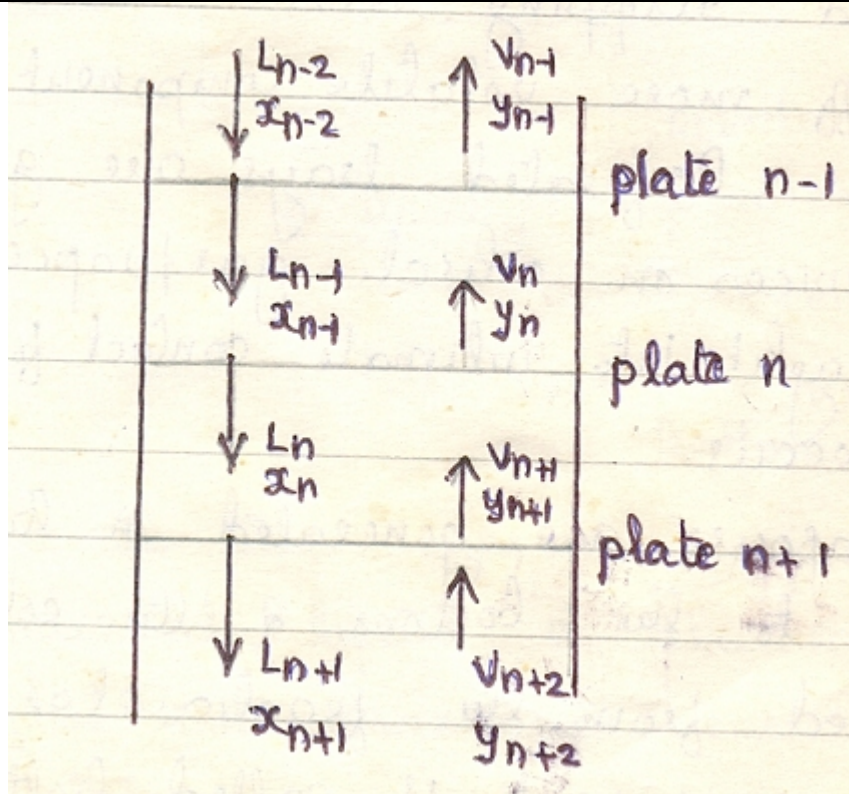 Ln-2
xn-2
Vn-1
yn-1
plate n-1
Ln-1
xn-1
Vn
yn
plate n
Ln
xn
Vn+1
yn+1
plate n+1
Ln+1
xn+1
Vn+2
yn+2